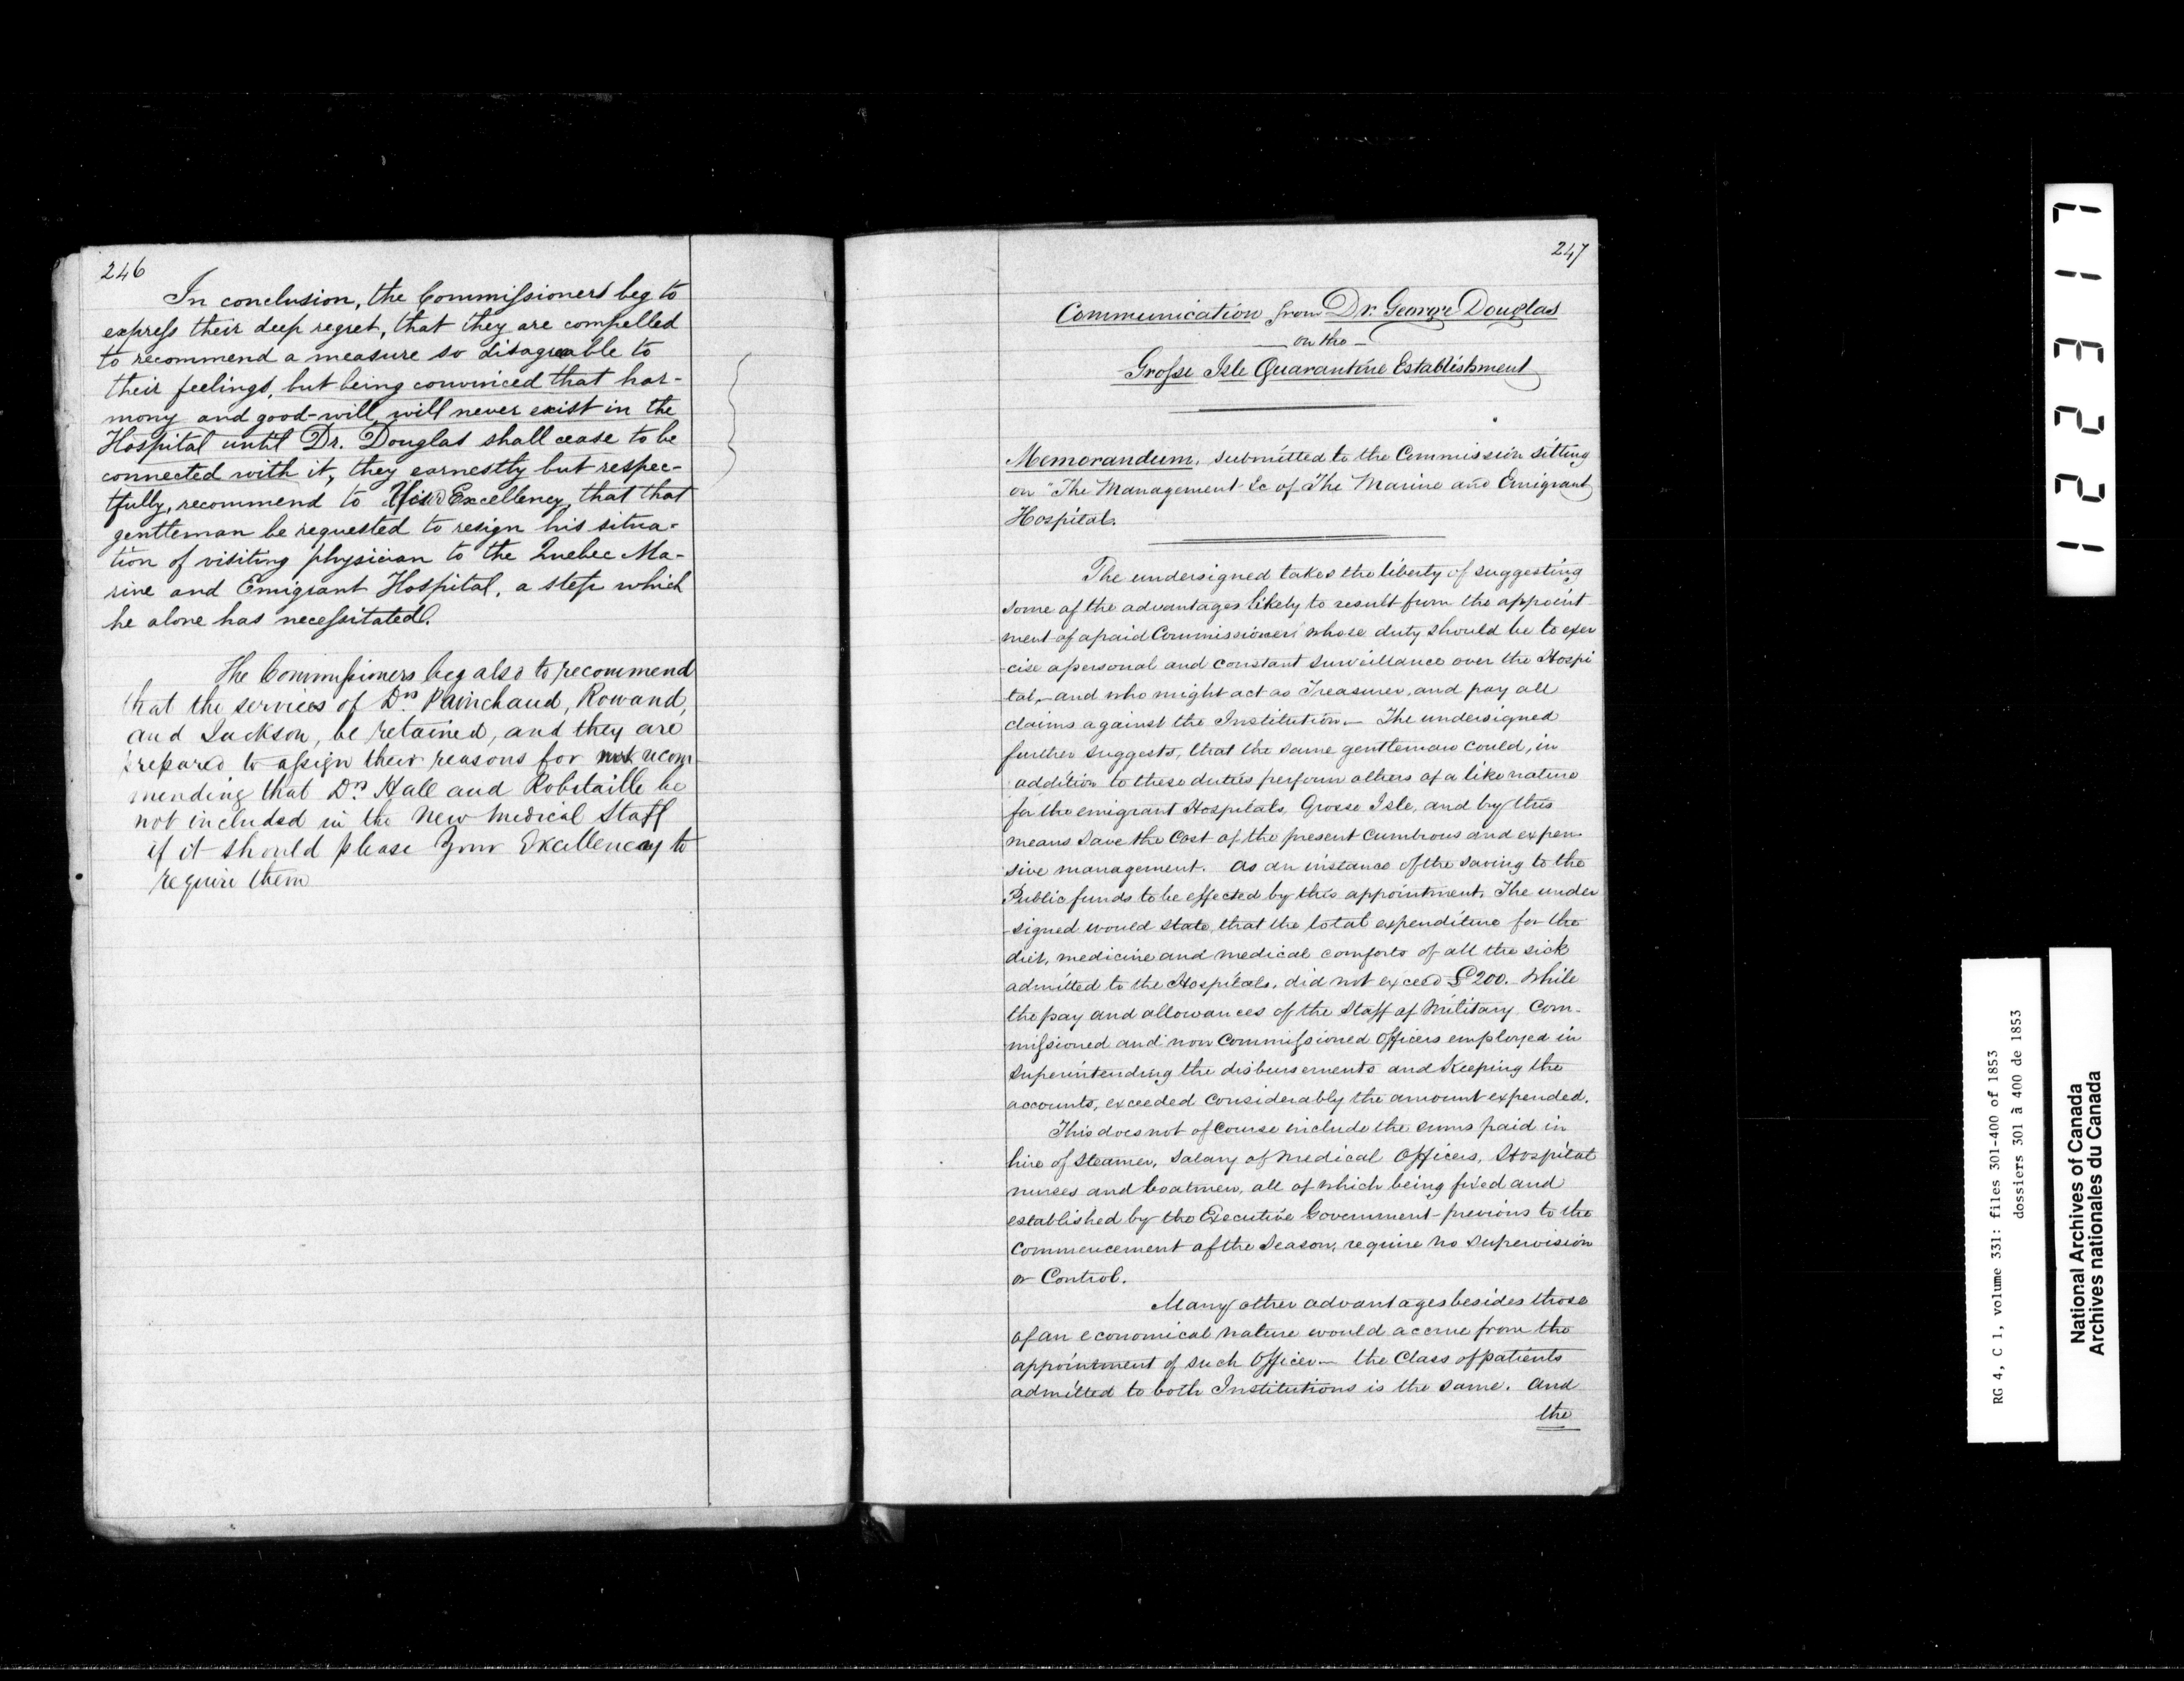 246
In conclusion, the Commissioners beg to
express their deep regret, that they are compelled
to recommend a measure so disagreeable to
their feelings, but being convinced that har-
mony and good-will, will never exist in the
Hospital until Dr. Douglas shall cease to be
connected with it, they earnestly but respec-
tfully, recommend to Excellency, that that
gentleman be requested to resign his situa-
tion of visiting physician to the Quebec Ma-
rine and Emigrant Hospital, a step which
he alone has necessitated.
The Commissioners beg also to recommend
that the services of Drs Painchaud, Rowand,
and Jackson, be retained, and they are
prepared to assign their reasons for recom-
mending that Drs Hall and Robitaille be
not included in the New Medical Staff
if it should please Your Excellency to
require them
247
Communication from Dr. George Douglas
on the
Grosse Isle Quarantine Establishment
Memorandum, submitted to the Commission sitting
on "The Management &c of The Marine and Emigrant
Hospital.
The undersigned takes the liberty of suggesting
some of the advantages likely to result from the appoint
ment of a paid Commissioner whose duty should be to exer
-cise a personal and constant surveillance over the Hospi
tal, and who might act as Treasurer, and pay all
claims against the Institution. — The undersigned
further suggests, that the same gentleman could, in
addition to these duties perform others of a like nature
for the emigrant Hospitals, Grosse Isle, and by this
means save the Cost of the present cumbrous and expen-
sive management. As an instance of the saving to the
Public funds to be effected by this appointment, The under
-signed would state, that the total expenditure for the
diet, medicine and medical comforts of all the sick
admitted to the Hospitals, did not exceed £200. While
the pay and allowances of the Staff of Military Com-
missioned and non Commissioned Officers employed in
superintending the disbursements and Keeping the
accounts, exceeded considerably the amount expended.
This does not of Course include the sums paid in
hire of Steamer, Salary of Medical Officers, Hospital
nurses and boatmen, all of which being fixed and
established by the Executive Government previous to the
Commencement of the Season, require no Supervision
or Control.
Many other advantages besides those
of an economical nature would accrue from the
appointment of such Officer — the Class of patients
admitted to both Institutions is the same. And
the
122317
RG 4, C 1, volume 331: files 301-400 of 1853
dossiers 301 à 400 de 1853
National Archives of Canada
Archives nationales du Canada